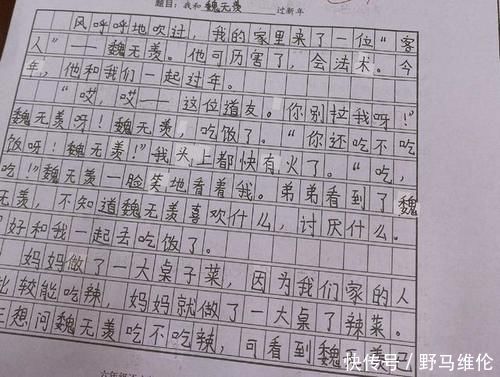 题目：我和魏无羡过新年
风呼呼地吹过，我的家里来了一位“客
人”——魏无羡。他可厉害了，会法术。今
年，他和我们一起过年。
“哎，哎——这位道友。你别拉我呀！”
魏无羡呀！魏无羡，吃饭了。“你还吃不吃
饭呀！魏无羡！”我头上都快有火了。“吃，
吃！”魏无羡一脸笑地看着我。弟弟看到了魏
无羡，不知道魏无羡喜欢什么，讨厌什么。
好和我一起去吃饭了。
妈妈做了一大桌子菜，因为我们家的人
比较能吃辣，妈妈就做了一大桌了辣菜。
三想问魏无羡吃不吃辣，可看到魏无羡
快传号 / 野马维伦